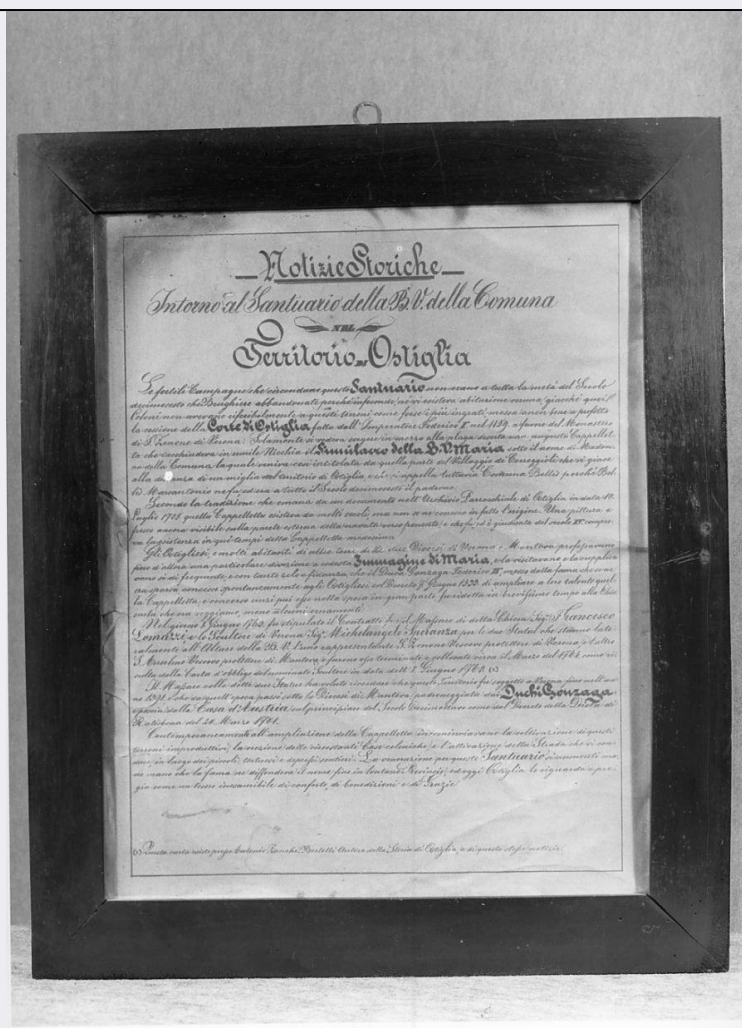 Notizie Storiche
Intorno al Santuario della B. V. della Comuna
NEL
Territorio di Ostiglia
Le fertili Campagne che circondano questo Santuario non erano a tutta la metà del Secolo
decimosesto che Brughiere abbandonate perchè infeconde, nè vi esisteva abitazione veruna, giacchè quei
Coloni non avevano
la cessione della Corte di Ostiglia fatta dall'Imperatore Federico nel 1159 a favore del Monastero
di S. Zenone di Verona. Solamente si vedeva sorgere in mezzo alla plaga deserta una angusta Cappellet-
ta che racchiudeva in umile Nicchia il Simulacro della B. V. Maria sotto il nome di Madon-
na della Comuna, la quale veniva così intitolata da quella parte del Villaggio di
alla distanza di un miglio dal territorio di Ostiglia e che si appella tuttavia Comuna Bellis perchè Bel-
lis Marcantonio ne fu ed era a tutto il Secolo decimosesto il padrone.
Secondo la tradizione che emana da un documento nell'Archivio Parrocchiale di Ostiglia in data 12
Luglio 1708 quella Cappelletta esisteva da molti secoli, ma non se ne conosce in fatto l'origine. Una pittura a
fresco ancora visibile sulla parete esterna
la esistenza in quei tempi della Cappelletta medesima.
Gli Ostigliesi, e molti abitanti di altre terre, di
fino d'allora una particolare divozione a codesta Immagine di Maria, e la visitavano e la supplica-
vano sì di frequente, e con tanta fede e fidanza, che il Duca Gonzaga Federico
concesse spontaneamente agli Ostigliesi col Decreto Giugno 1533 di ampliare a loro talento quel-
la Cappelletta, e concorse anzi pur esso nella spesa in gran parte, fu ridotta in brevissimo tempo alla Chie-
sa che ora veggiamo, meno alcuni ornamenti.
Nel giorno 8 Giugno 1763 fu stipulato il Contratto fra il Massaro di detta Chiesa Sig. Francesco
Lomazzi e lo Scultore di Verona Sig. Michelangelo Speranza per le due Statue che stanno late-
ralmente all'Altare della B. V. l'uno rappresentante S. Zenone Vescovo protettore di Verona, e l'altro
S. Anselmo Vescovo protettore di Mantova, e furono esse terminate e collocate verso il Marzo del 1764 come ri-
sulta dalla Carta d'obbligo del nominato Scultore in data dell' 8 Giugno 1763. (1)
Il Massaro colle dette due Statue ha voluto ricordare che questo Territorio fu soggetto a Verona fino nell'an-
no 1391, e che da quell'epoca passò sotto la Diocesi di Mantova, padroneggiata dai Duchi Gonzaga
dalla Casa d'Austria sul principiar del Secolo Decimottavo come dal Decreto della Dieta di
Ratisbona del 30 Marzo 1701.
Contemporaneamente all'ampliazione della Cappelletta incominciarono la coltivazione di questi
terreni improduttivi, la erezione delle circostanti Case coloniche, e l'attivazione della Strada che vi con-
duce, in luogo dei piccoli, tortuosi e spessi sentieri. La venerazione per questo Santuario aumentò ma-
no mano che la fama ne diffondeva il nome fino in lontane Provincie, ed oggi Ostiglia lo riguarda a pre-
gio come un tesoro inesauribile di conforto, di benedizioni e di Grazie
(1) Questa carta esiste presso Antonio Zanchi Bertelli Autore della Storia di Ostiglia, e di queste stesse notizie.